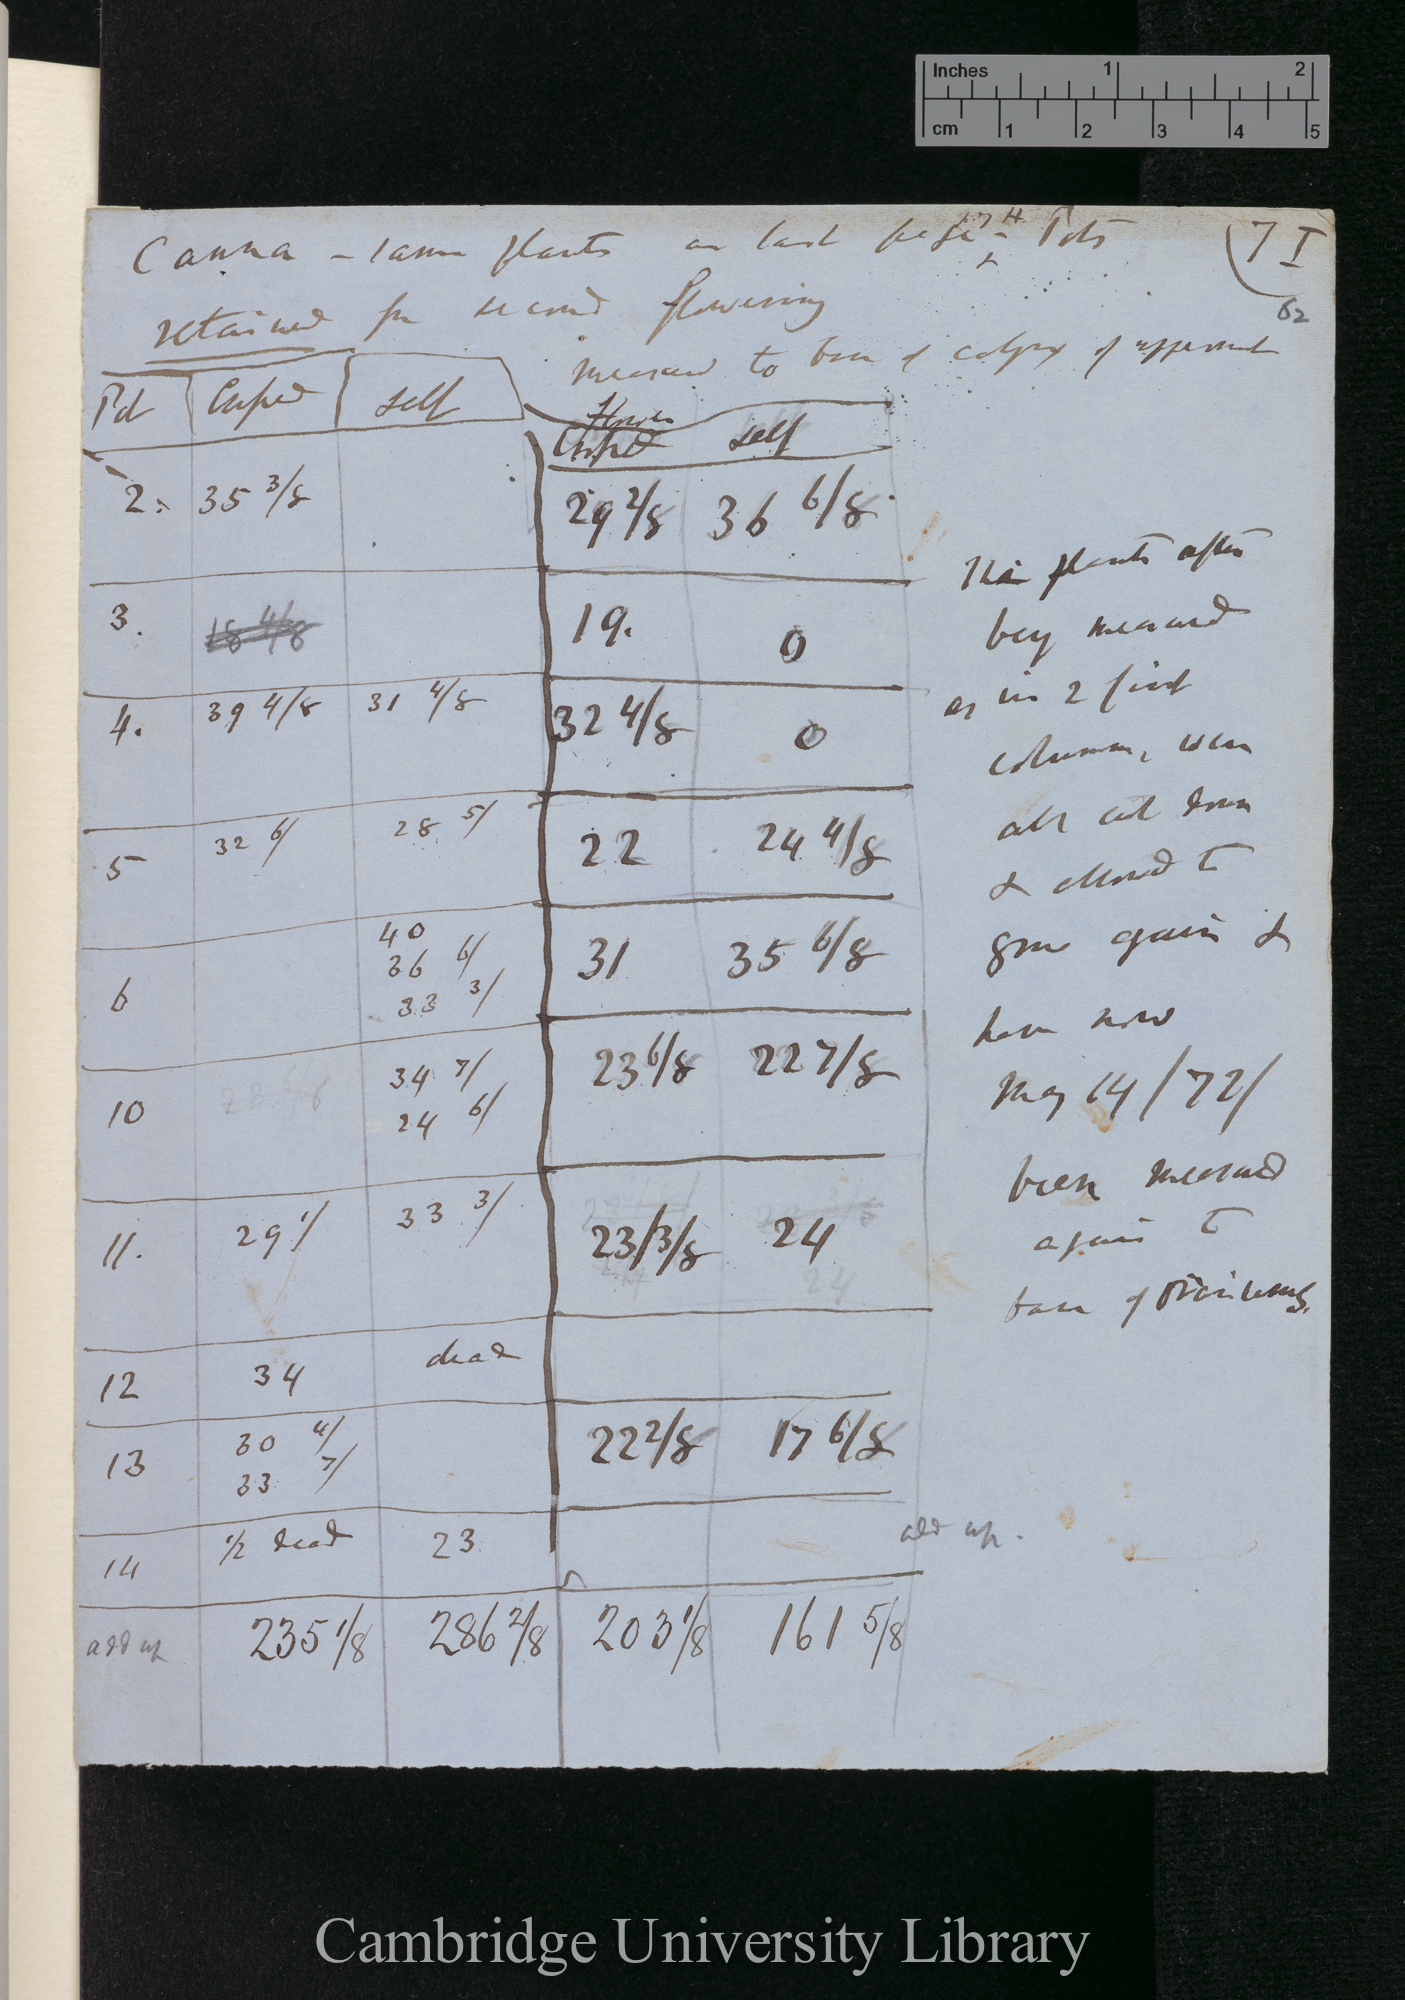 Inches 1 2
cm 1 2 3 4 5
Canna – same plants as last page 17 H – Pots
(7 I
62
retained for second flowering
measured to base of calyx of uppermost
Flower
Pot Crossed self
Crossed self
2. 35 3/8 29 2/8 36 6/8
3. 18 4/8 19. 0
4. 39 4/8 31 4/8 32 4/8 0
5 32 6/ 28 5/ 22 24 4/8
6 40 31 35 6/8
36 6/
33 3/
10 22 6/8 34 7/ 23 6/8 22 7/8
24 6/
11. 29 1/ 33 3/ 23/3/8 24
24
12 34 dead
13 30 4/ 22 2/8 17 6/8
33 7/
14 1/2 dead 23
add up.
add up 235 1/8 286 2/8 203 1/8 161 5/8
The plants after
being measured
as in 2 first
columns, were
all cut down
& allowed to
grow again &
have now
May 14/72/
been measured
again to
base of
Cambridge University Library